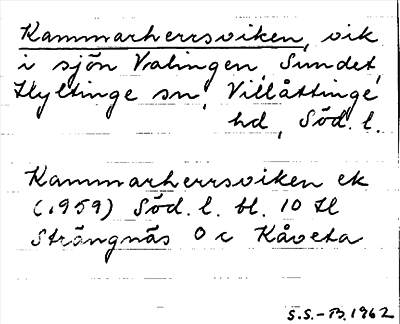 Kammarherrsviken, vik
i sjön Valingen, Sundet,
Hyltinge sn, Villåttinge
hd, Söd. l.
Kammarherrsviken ek
(1959) Söd. l. bl. 10 Il
Strängnäs O c Kåveta
S.S.-B. 1962